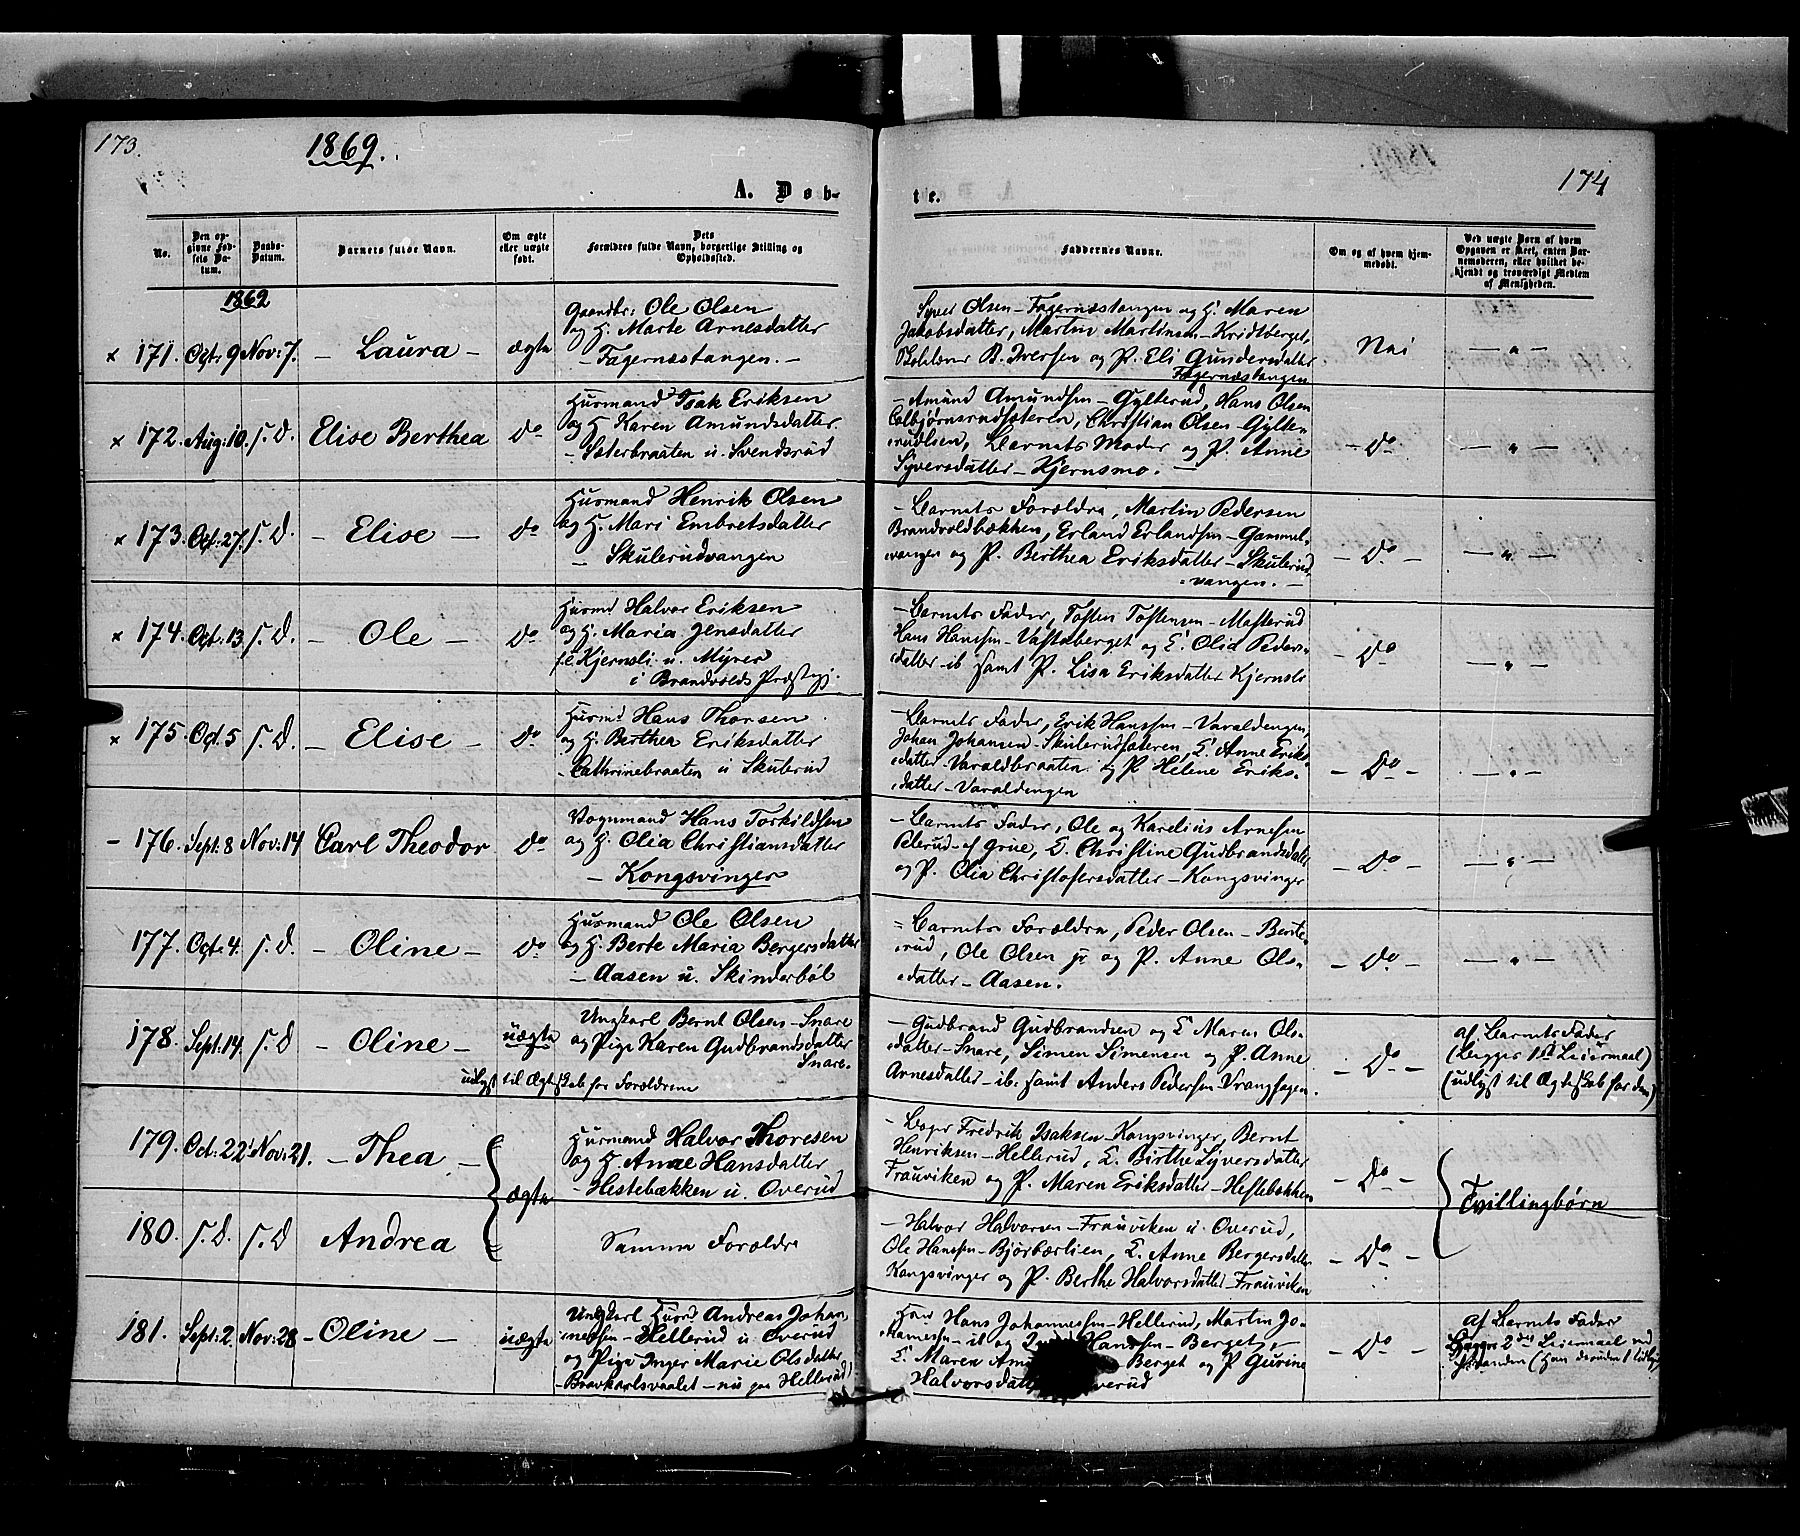 173.
1869.
174
A. Døb-
te.
No.
Den opgivne Fødsels Datum.
Daabs-Datum.
Barnets fulde Navn.
Om ægte eller uægte født.
Dets Forældres fulde Navn, borgerlige Stilling og Opholdssted.
Faddernes Navne.
Om og af hvem hjemmedøbt.
Ved uægte Børn af hvem Opgaven er skeet, enten Barnemoderen, eller hvilket bekjendt og troværdigt Medlem af Menigheden.
1869
x 171. Oct: 9 Nov: 7. – Laura – ægte
Gaardbr: Ole Olsen
og H. Marte Arnesdatter
– Fagernæstangen. –
Syver Olsen – Fagernæstangen og H. Maren
Jakobsdatter, Martin Martinsen – Kridtberget,
B. Iversen og P. Eli Gundersdatter
Fagernæstangen
Nei
— " —
x 172. Aug: 10. s. D. Elise Berthea do
Husmand Isak Eriksen
og H. Karen Amundsdatter
– Sæterbraaten u. Svendsrud
– Amund Amundsen – Gylterud, Hans Olsen
Colbjørnsrudsæteren, Christian Olsen – Gylte-
rudlsen, Barnets Moder og P. Anne
Syversdatter – Kjernsmo. –
– do
— " —
x 173. Oct: 27. s. D. – Elise – do
Husmand Henrik Olsen
og H. Mari Embretsdatter
– Skulerudvangen
– Barnets Forældre, Martin Pedersen
Brandvoldbækken, Erland Erlandsen – Gammel-
vangen og P. Berthea Eriksdatter – Skulerud-
vangen. –
– do –
— " —
x 174. Oct: 13. s. D. – Ole – do
Husmd Halvor Eriksen
og H. Maria Jensdatter
Kjernsli u. Myrer
i Brandvolds Præstegj.
– Barnets Fader, Tosten Tostensen – Masterud
Hans Hansen – Vastaberget og E. Olia Peders-
datter – ib samt P. Lisa Eriksdatter Kjernsli
– do
— " —
x 175. Oct. 5 s. D. – Elise – do
Husmd Hans Thorsen
og H. Berthea Eriksdatter
– Cathrinebraaten u Skulerud
– Barnets Fader, Erik Hanssen – Varaldengen,
Johan Johansen – Skulerudsæteren, E. Anne Eriks-
datter – Varaldbraaten og P. Helene Eriks-
datter – Varaldengen
– do –
— " —
– 176. Sept: 8 Nov: 14 Carl Theodor. do
Vognmand Hans Torkildsen
og H. Olia Christiansdatter
– Kongsvinger
– Barnets Fader, Ole og Karelius Arnesen
Pelerud af Grue, E. Christine Gudbrandsdatter
og P. Olia Christofersdatter – Kongsvinger
– do –
— " —
177. Oct: 4. s. D. – Oline – do
Husmand Ole Olsen
og H. Berte Maria Bergersdatter
– Aasen u. Skinderbøl
– Barnets Forældre, Peder Olsen – Berte-
rud, Ole Olsen jr og P. Anne Ols-
datter – Aasen.
– do –
— " —
178. Sept: 14. s. D – Oline – uægte
Ungkarl Bernt Olsen – Snare
og Pige Karen Gudbrandsdatter
Snare.
udlyst til Ægteskab for Forældrene
– Gudbrand Gudbrandsen og E. Maren Ols-
datter – Snare, Simen Simensen og P. Anne
Arnesdatter – ib: samt Anders Pedersen Vranghagen
– do –
af Barnets Fader
(Begges 1ste Leiermaal)
(udlyst til Ægteskab for dem)
179. Oct: 22 Nov: 21. – Thea – ægte
Husmand Halvor Thoresen
og H. Anne Hansdatter
– Hestebækken u. Overud
Fredrik Isaksen – Kongsvinger, Bernt
Henriksen – Hellerud, E. Birthe Syversdatter
Frauviken og P. Maren Eriksdatter – Hestebækken
– do –
Tvillingbørn
180. s. D. s. D Andrea
Samme Forældre
– Halvor Halvorsen – Frauviken u. Overud,
Ole Hanssen – Bjørbærlien, E. Anne Bergersdatter
Kongsvinger og P. Berthe Halvorsdatter – Frauviken
– do –
181. Sept: 2. Nov: 28 – Oline – uægte
Ungkarl Husmd Andreas Johan-
nessen – Hellerud u Overud
og Pige Inger Marie Olsdatter
– nu paa Hellerud
Hans Johannessen – Hellerud, Martin Jo-
hannessen – ib og Hanssen – Berget,
E. Maren – Berget og P. Gurine
Halvorsdatter Overud
– do –
af Barnets Fader
2det Leiermaal